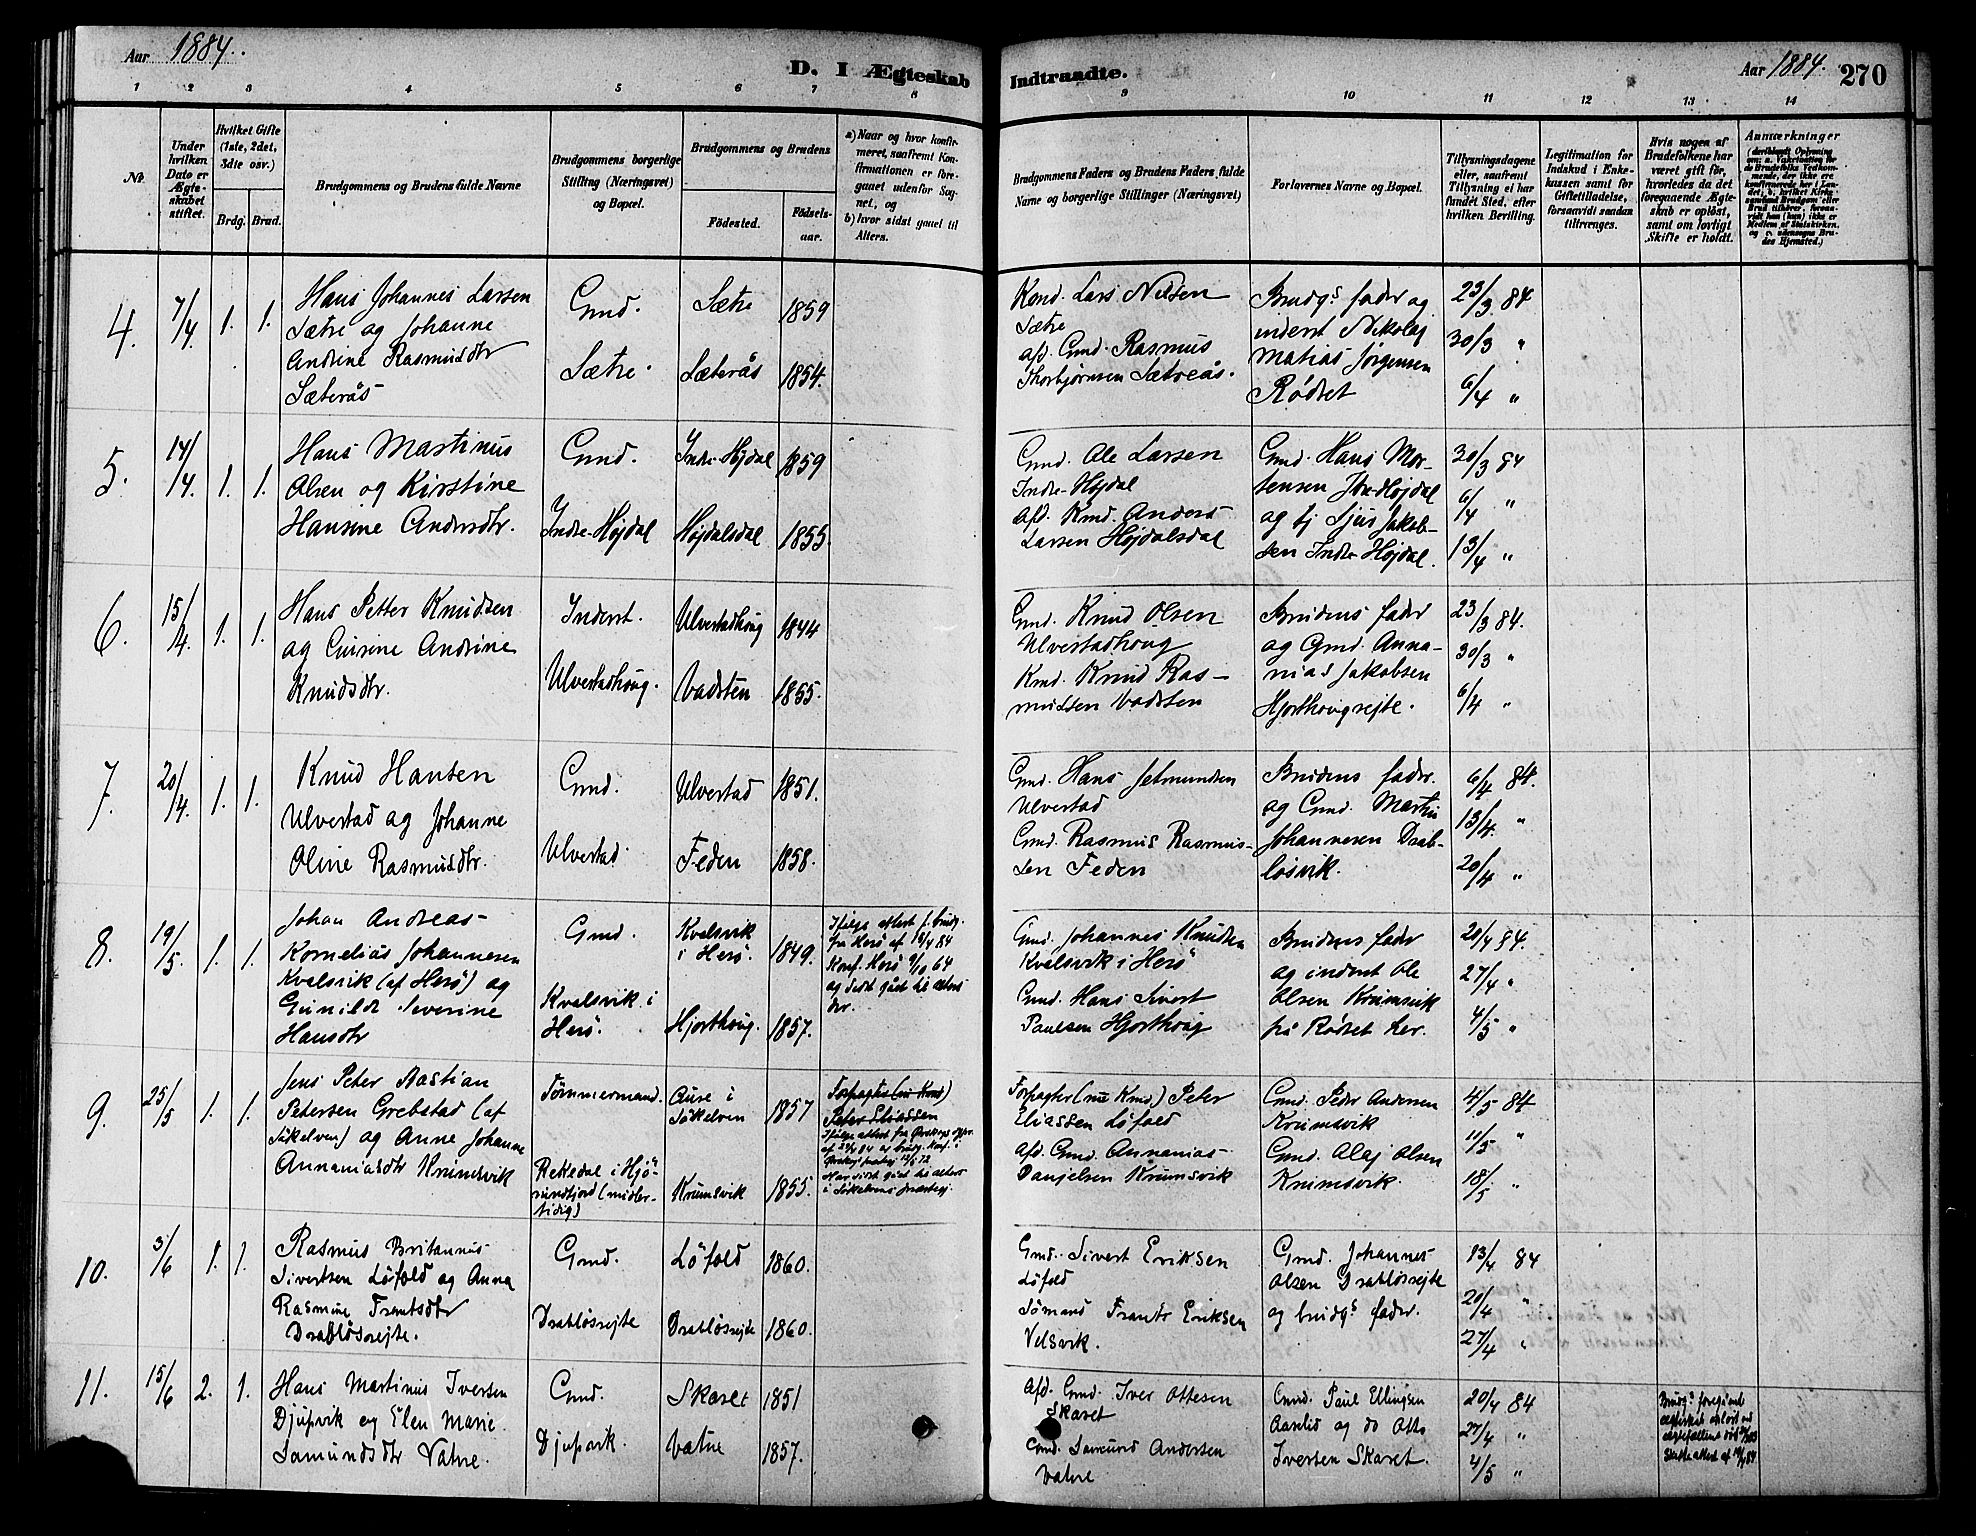 Aar 1884.
D. I Ægteskab
Indtraadte.
Aar 1884.
270
1 2 3 4 5 6 7 8
9 10 11 12 13 14
No.
Under hvilken Dato er Ægteskabet stiftet.
Hvilket Gifte (1ste, 2det, 3die osv.)
Brdg. Brud.
Brudgommens og Brudens fulde Navne
Brudgommens borgerlige Stilling (Næringsvei) og Bopæl.
Brudgommens og Brudens
Fødested.
Fødselsaar.
a) Naar og hvor konfirmeret, saafremt Konfirmationen er foregaaet udenfor Sognet, og
b) hvor sidst gaaet til Alters.
Brudgommens Faders og Brudens Faders fulde Navne og borgerlige Stillinger (Næringsvei)
Forlovernes Navne og Bopæl.
Tillysningsdagene eller, saafremt Tillysning ei har fundet Sted, efter hvilken Bevilling.
Legitimation for Indskud i Enkekassen samt for Giftetilladelse, forsaavidt saadan tiltrænges.
Hvis nogen af Brudefolkene har været gift før, hvorledes da det foregaaende Ægteskab er opløst, samt om lovligt Skifte er holdt.
Anmærkninger
4. 7/4 1. 1.
Hans Johannes Larsen
Sætre og Johanne
Andrine Rasmusdtr
Sæterås
Gmd.
Sætre.
Sætre 1859
Sæterås 1854.
Kmd. Lars Nilsen
Sætre
afd. Gmd. Rasmus
Thorbjørnsen Sætreås.
Brudgs fader og
inderst Nikolaj
Matias Jørgensen
Rødset
23/3 84
30/3 "
6/4 "
5. 14/4. 1. 1.
Hans Martinus
Olsen og Kirstine
Hansine Andersdtr.
Gmd.
Indre-Højdal
Indre-Højdal 1859
Højdalsdal 1855.
Gmd. Ole Larsen
Indre-Højdal
Afd. Kmd. Anders
Larsen Højdalsdal
Gmd. Hans Mor-
tensen Ytre-Højdal
og Sjus Jakob-
sen Indre Højdal.
30/3 84
6/4 "
13/4 "
6. 15/4. 1. 1.
Hans Petter Knudsen
og Gurine Andrine
Knudsdtr.
Inderst.
Ulvestadhoug.
Ulvestadhoug 1844
Vadsten 1855.
Gmd. Knud Olsen
Ulvestadhoug
Kmd. Knud Ras-
mussen Vadsten
Brudens fader
og Gmd. Anna-
nias Jakobsen
Hjorthougrejte.
23/3 84.
30/3 "
6/4 "
7. 20/4. 1. 1.
Knud Hansen
Ulvestad og Johanne
Oline Rasmusdtr.
Gmd.
Ulvestad.
Ulvestad 1851.
Feden 1858.
Gmd. Hans Jetmundsen
Ulvestad
Gmd. Rasmus Rasmus-
sen Feden
Brudens fader.
og Gmd. Martin
Johannesen Drab-
løsvik.
6/4 84.
13/4. "
20/4 "
8. 19/5. 1. 1.
Johan Andreas
Kornelius Johannesen
Kvalsvik (af Herø) og
Gunilde Severine
Hansdtr
Gmd.
Kvalsvik i
Herø.
Kvalsvik
i Herø. 1849.
Hjorthoug. 1857.
Ifølge attest f. brudg.
fra Herø af 18/4 84
Konf. Herø 9/10 64
og sidst gået til alters
her.
Gmd. Johannes Knudsen
Kvalsvik i Herø
Gmd. Hans Sivert
Paulsen Hjorthoug
Brudens fader
og inderst Ole
Olsen Krumsvik
på Rødset her.
20/4 84.
27/4 "
4/5 "
9. 25/5 1. 1.
Jens Peter Bastian
Petersen Grebstad (af
Søkelven) og Anne Johanne
Annaniasdtr Krumsvik
Tømmermand.
Rekedal i Hjø-
rundfjord (midler-
tidig)
Aure i
Søkelven 1857
Krumsvik 1855.
Forpagter (nu Kmd)
Peter Eliassen
Ifølge attest fra Ørskogs
Har sidst gået til alters
i Søkelvens
Forpagter (nu Kmd.) Peter
Eliassen Løfold
Afd. Gmd. Annanias
Danjelsen Krumsvik
Gmd. Peder Andersen
Krumsvik
Gmd. Olaj Olsen
Krumsvik.
4/5 84
11/5 "
18/5 "
10. 3/6 1. 1.
Rasmus Britannus
Sivertsen Løfold og Anna
Rasmine Frantsdtr
Drabløsrejte.
Gmd.
Drabløsrejte
Løfold 1860.
Drabløsrejte 1860.
Gmd. Sivert Eriksen
Løfold
Sømand Frants Eriksen
Velsvik.
Gmd. Johannes
Olsen Drabløsrejte
og brudgs fader.
13/4 84
20/4 "
27/4 "
11. 15/6 2. 1.
Hans Martinus Iversen
Djupvik og Elen Marie
Samundsdtr Vatne.
Gmd.
Djupvik.
Skaret 1851
Vatne 1857.
Afd. Gmd. Iver Ottesen
Skaret
Gmd. Samund Andersen
Vatne
Gmd. Paul Ellingsen
Aarlid og do Otto
Iversen Skaret.
20/4 84
27/4 "
4/5 "